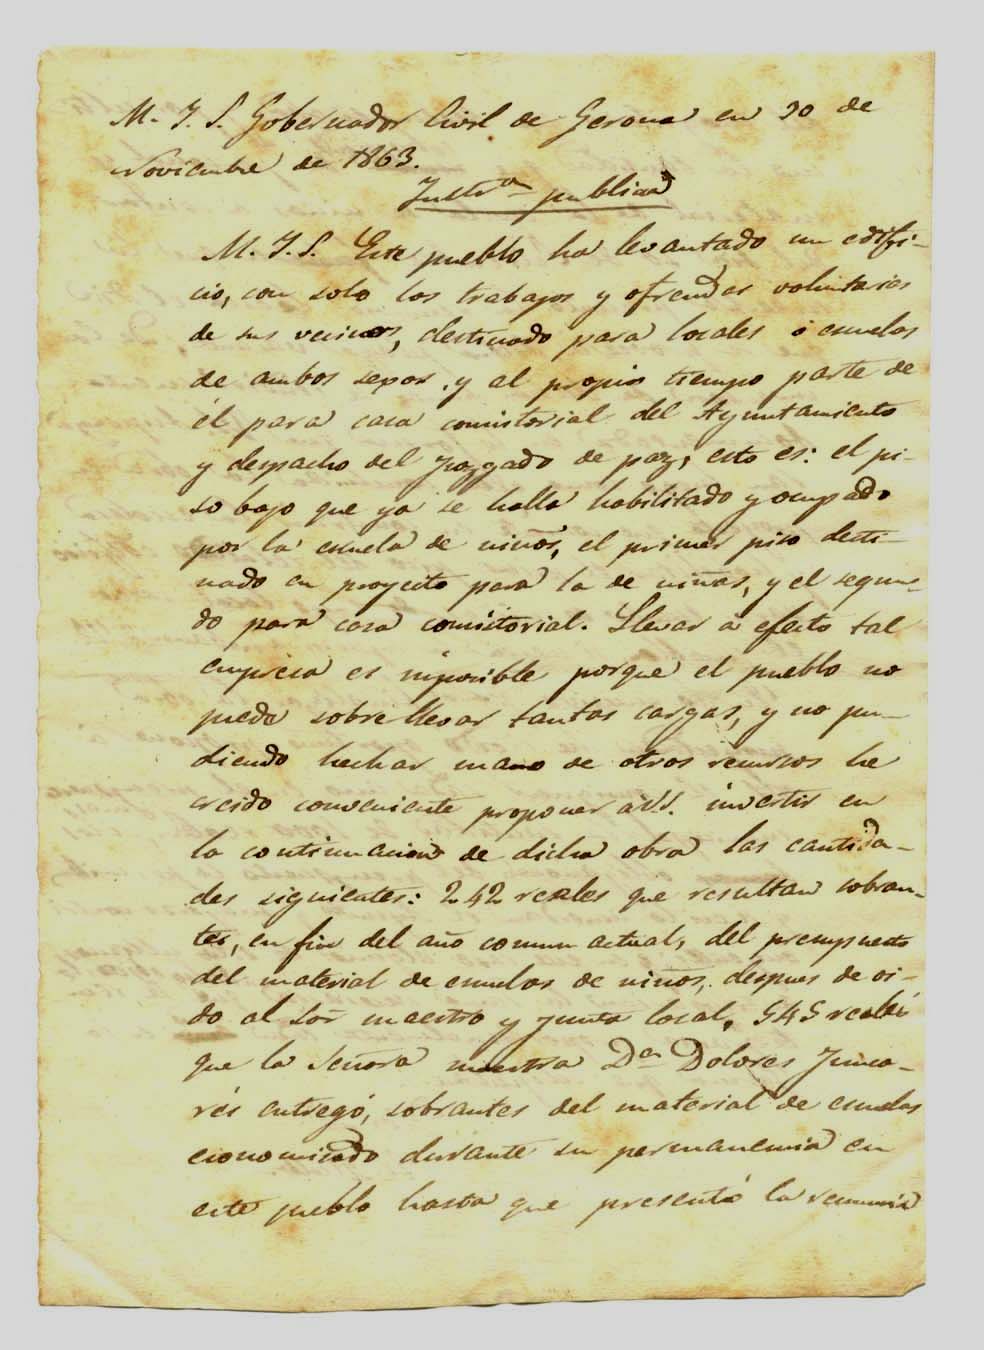 M. I. S. Gobernador Civil de Gerona en 30 de
Noviembre de 1863.
Instr.on publica
M. I. S. Este pueblo ha levantado un edifi-
cio, con solo los trabajos y ofrendas voluntarios
de sus vecinos, destinado para locales ó escuelas
de ambos sexos, y al propio tiempo parte de
él para casa consistorial del Ayuntamiento
y despacho del Juzgado de paz, esto es: el pi-
so bajo que ya se halla habilitado y ocupado
por la escuela de niños, el primer piso desti-
nado en proyecto para la de niñas, y el segun-
do para casa consistorial. Llevar á efecto tal
empresa es imposible porque el pueblo no
puede sobrellevar tantas cargas, y no pu-
diendo hechar mano de otros recursos he
creido conveniente proponer a V.S. invertir en
la continuacion de dicha obra las cantida-
des siguientes: 242 reales que resultan sobran-
tes, en fin del año comun actual, del presupuesto
del material de escuelas de niños, despues de oi-
do al Sor maestro y junta local, 545 reales
que la Señora maestra D.a Dolores Junca-
rés entregó, sobrantes del material de escuelas
economisado durante su permanencia en
este pueblo hasta que presentó la renuncia